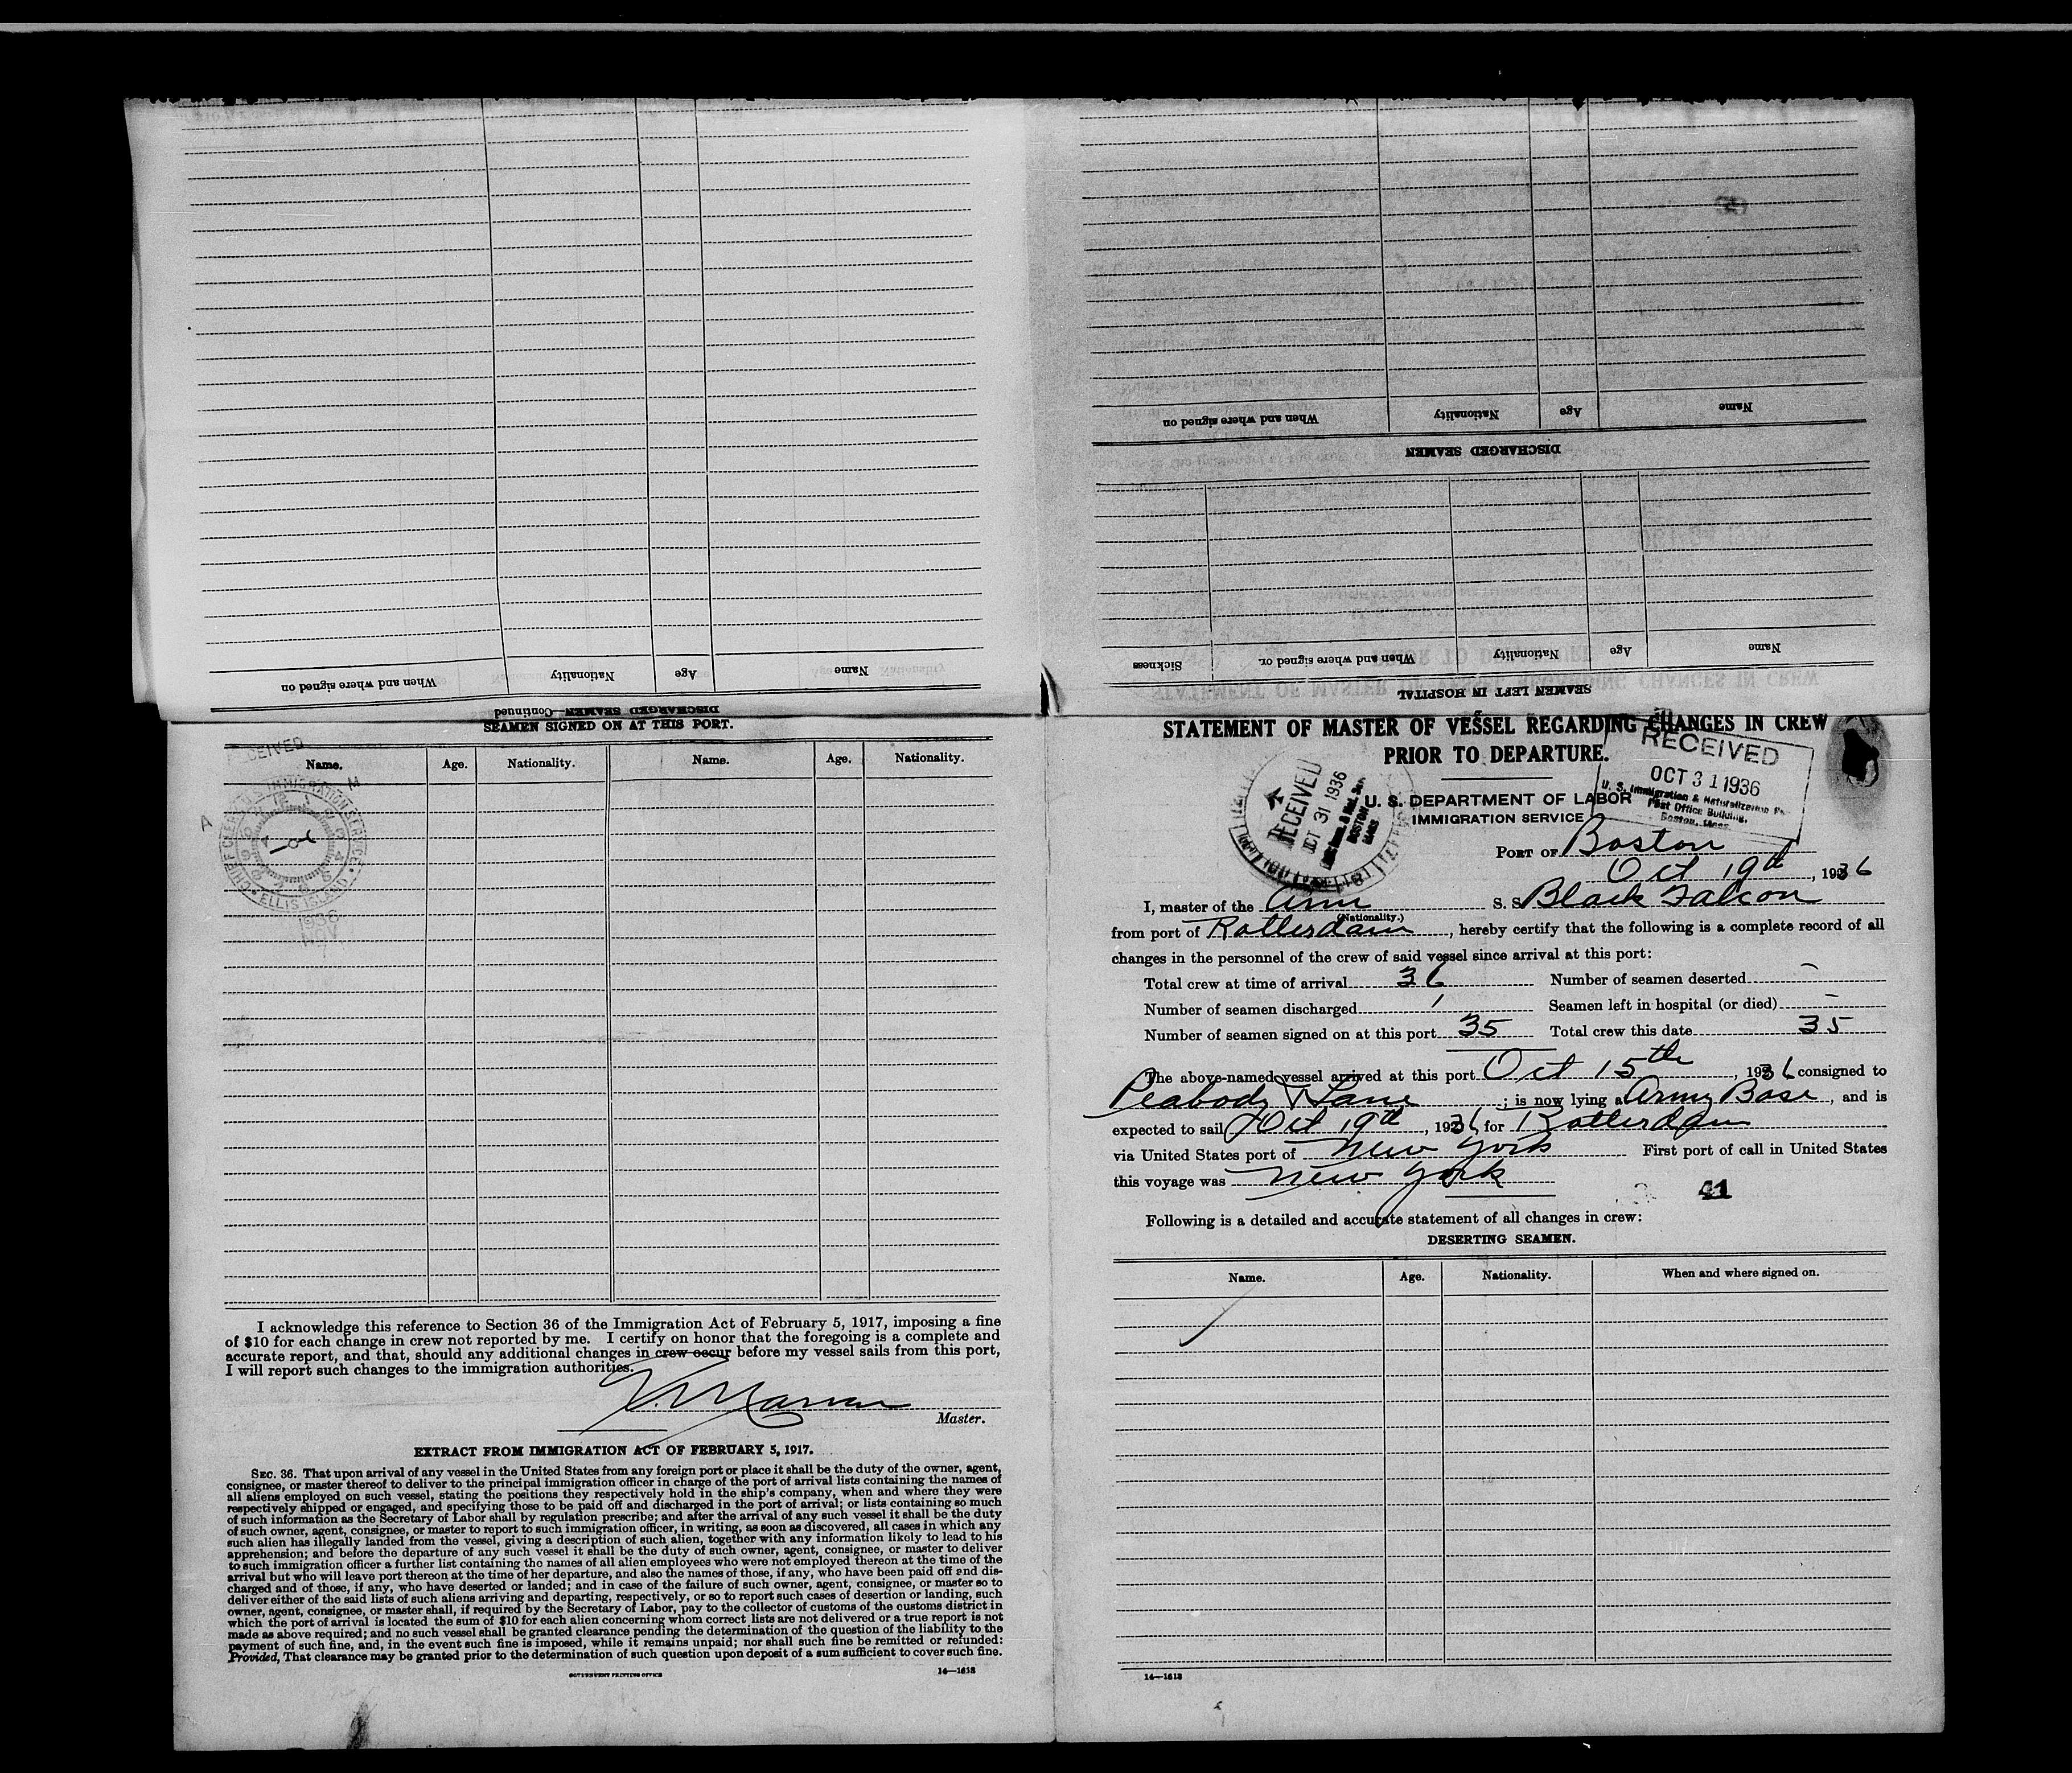 When and where signed on Nationality Age Name
DISCHARGED SEAMEN—Continued
When and where signed on Nationality Age Name
DISCHARGED SEAMEN
Sickness When and where signed on. Nationality Age Name
SEAMEN LEFT IN HOSPITAL
SEAMEN SIGNED ON AT THIS PORT.
Name. Age. Nationality. Name. Age. Nationality.
CHIEF
IMMIGRATION SERVICE
ELLIS ISLAND
1936
NOV
I acknowledge this reference to Section 36 of the Immigration Act of February 5, 1917, imposing a fine
of $10 for each change in crew not reported by me. I certify on honor that the foregoing is a complete and
accurate report, and that, should any additional changes in crew occur before my vessel sails from this port,
I will report such changes to the immigration authorities.
Master.
EXTRACT FROM IMMIGRATION ACT OF FEBRUARY 5, 1917.
SEC. 36. That upon arrival of any vessel in the United States from any foreign port or place it shall be the duty of the owner, agent,
consignee, or master thereof to deliver to the principal immigration officer in charge of the port of arrival lists containing the names of
all aliens employed on such vessel, stating the positions they respectively hold in the ship's company, when and where they were
respectively shipped or engaged, and specifying those to be paid off and discharged in the port of arrival; or lists containing so much
of such information as the Secretary of Labor shall by regulation prescribe; and after the arrival of any such vessel it shall be the duty
of such owner, agent, consignee, or master to report to such immigration officer, in writing, as soon as discovered, all cases in which any
such alien has illegally landed from the vessel, giving a description of such alien, together with any information likely to lead to his
apprehension; and before the departure of any such vessel it shall be the duty of such owner, agent, consignee, or master to deliver
to such immigration officer a further list containing the names of all alien employees who were not employed thereon at the time of the
arrival but who will leave port thereon at the time of her departure, and also the names of those, if any, who have been paid off and dis-
charged and of those, if any, who have deserted or landed; and in case of the failure of such owner, agent, consignee, or master so to
deliver either of the said lists of such aliens arriving and departing, respectively, or so to report such cases of desertion or landing, such
owner, agent, consignee, or master shall, if required by the Secretary of Labor, pay to the collector of customs of the customs district in
which the port of arrival is located the sum of $10 for each alien concerning whom correct lists are not delivered or a true report is not
made as above required; and no such vessel shall be granted clearance pending the determination of the question of the liability to the
payment of such fine, and, in the event such fine is imposed, while it remains unpaid; nor shall such fine be remitted or refunded:
Provided, That clearance may be granted prior to the determination of such question upon deposit of a sum sufficient to cover such fine.
GOVERNMENT PRINTING OFFICE 14—1613
STATEMENT OF MASTER OF VESSEL REGARDING CHANGES IN CREW
PRIOR TO DEPARTURE.
RECEIVED
OCT 31 1936
U. S. Immigration & Naturalization
Post Office Building,
Boston, Mass.
RECEIVED
OCT 31 1936
BOSTON
MASS
U. S. DEPARTMENT OF LABOR
IMMIGRATION SERVICE
PORT OF Boston
Oct 19th, 1936
I, master of the Am S. S. Black Falcon
(Nationality.)
from port of Rotterdam, hereby certify that the following is a complete record of all
changes in the personnel of the crew of said vessel since arrival at this port:
Total crew at time of arrival 36 Number of seamen deserted –
Number of seamen discharged 1 Seamen left in hospital (or died) –
Number of seamen signed on at this port 35 Total crew this date 35
The above-named vessel arrived at this port Oct 15th, 1936 consigned to
Peabody & Lane; is now lying at Army Base, and is
expected to sail Oct 19th, 1936, for Rotterdam
via United States port of New York First port of call in United States
this voyage was New York
41
Following is a detailed and accurate statement of all changes in crew:
DESERTING SEAMEN.
Name. Age. Nationality. When and where signed on.
14—1613